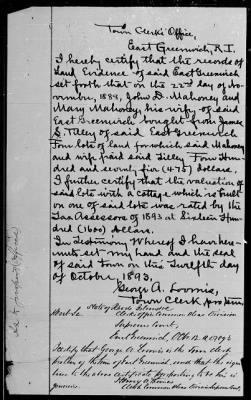 Town Clerk's Office,
East Greenwich, R.I.
I hereby certify that the records of
Land Evidence of said East Greenwich
set forth that on the 22nd day of No-
vember, 1884, John D. Mahoney and
Mary Mahoney, his wife, of said
East Greenwich bought from James
S. Tilley of said East Greenwich
Four lots of land for which said Mahoney
and wife paid said Tilley Four Hun-
dred and seventy five (475) Dollars.
I further certify that the valuation of
said lots with a cottage which is built
on one of said lots was rated by the
Tax Assessors of 1893 at Sixteen Hun-
dred (1600) Dollars.
In Testimony Whereof I have here-
unto set my hand and the seal
of said town on this Twelfth day
of October, 1893,
George A. Loomis,
Town Clerk pro tem
State of Rhode Island
Kent Sc. Clerks Office Common Pleas Division
Supreme Court,
East Greenwich, Oct. 12 A.D. 1893
I certify that George A. Loomis is the Town Clerk
pro tem of the town of East Greenwich, and that the signa
to the above certificate purporting to be his is
genuine.
Clerk Common Pleas Division